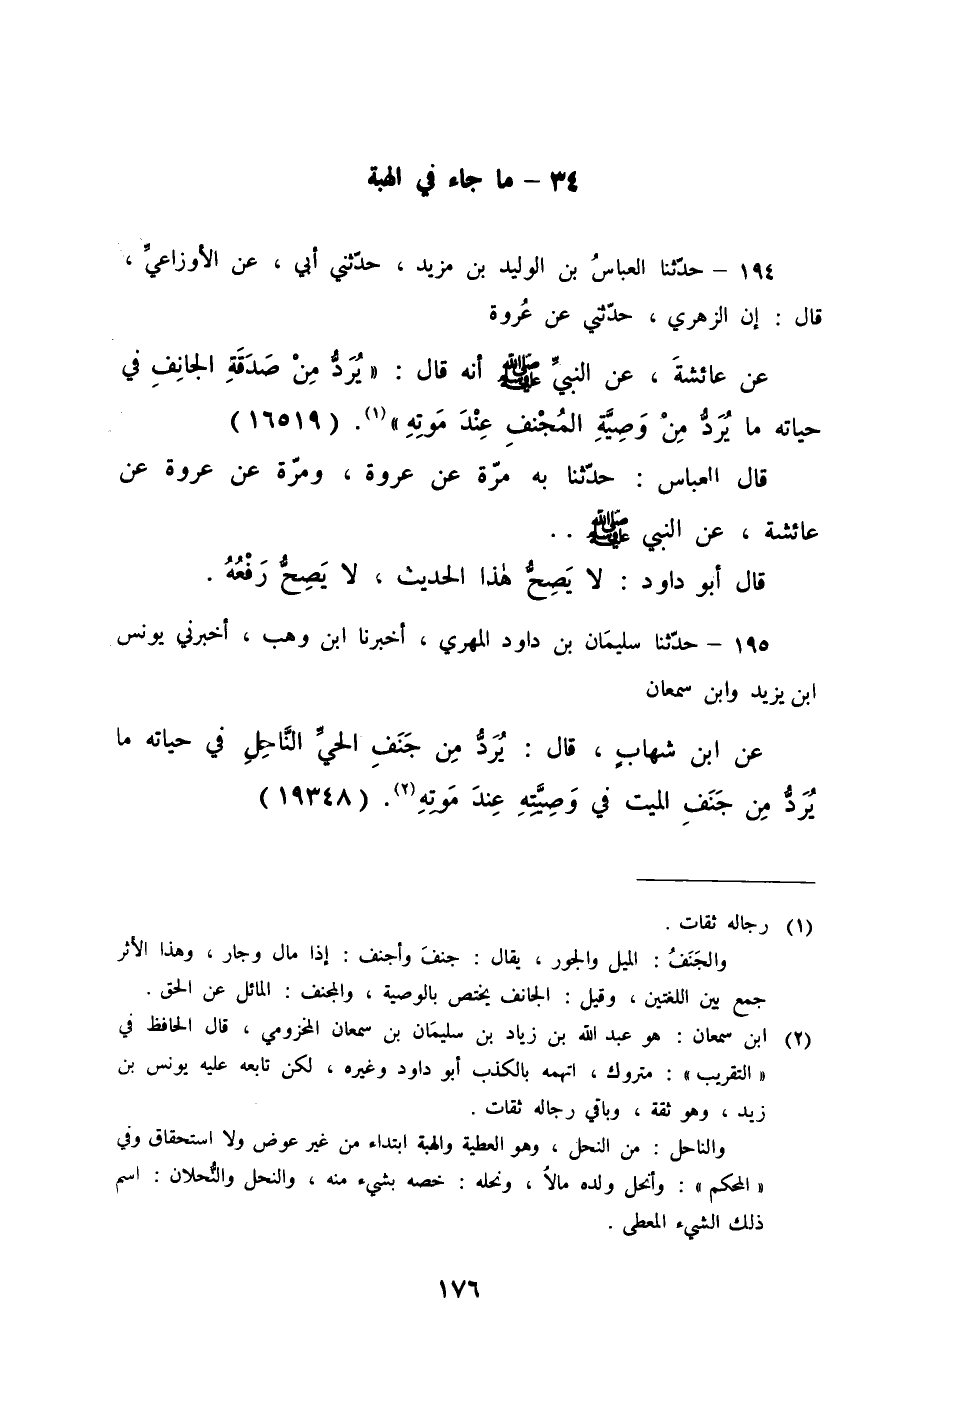 ٣٤ – ما جاء في الهبة
١٩٤ – حدّثنا العباسُ بن الوليد بن مزيد ، حدّثني أبي ، عن الأوزاعيِّ ،
قال : إن الزهري ، حدّثني عن عُروة
عن عائشةَ ، عن النبيِّ ﷺ أنه قال : « يُرَدُّ مِنْ صَدَقَةِ الجانِفِ في
حياته ما يُرَدُّ مِنْ وَصِيَّةِ المُجْنفِ عِنْدَ مَوتِهِ »(١). ( ١٦٥١٩ )
قال العباس : حدّثنا به مرّة عن عروة ، ومرّة عن عروة عن
عائشة ، عن النبي ﷺ . .
قال أبو داود : لا يَصِحُّ هٰذا الحديث ، لا يَصِحُّ رَفْعُهُ .
١٩٥ – حدّثنا سليمَان بن داود المهري ، أخبرنا ابن وهب ، أخبرني يونس
ابن يزيد وابن سمعان
عن ابن شهابٍ ، قال : يُرَدُّ مِن جَنَفِ الحيِّ النَّاحِلِ في حياته ما
يُرَدُّ مِن جَنَفِ الميت في وَصِيَّتِهِ عِندَ مَوتِهِ(٢). ( ١٩٣٤٨ )
(١) رجاله ثقات .
والجَنَفُ : الميل والجور ، يقال : جنفَ وأجنف : إذا مال وجار ، وهذا الأثر
جمع بين اللغتين ، وقيل : الجانف يختص بالوصية ، والمجنف : المائل عن الحق .
(٢) ابن سمعان : هو عبد الله بن زياد بن سليمَان بن سمعان المخزومي ، قال الحافظ في
« التقريب » : متروك ، اتهمه بالكذب أبو داود وغيره ، لكن تابعه عليه يونس بن
زيد ، وهو ثقة ، وباقي رجاله ثقات .
والناحل : من النحل ، وهو العطية والهبة ابتداء من غير عوض ولا استحقاق وفي
« المحكم » : وأنحل ولده مالاً ، ونحله : خصه بشيء منه ، والنحل والنُّحلان : اسم
ذلك الشيء المعطى .
١٧٦